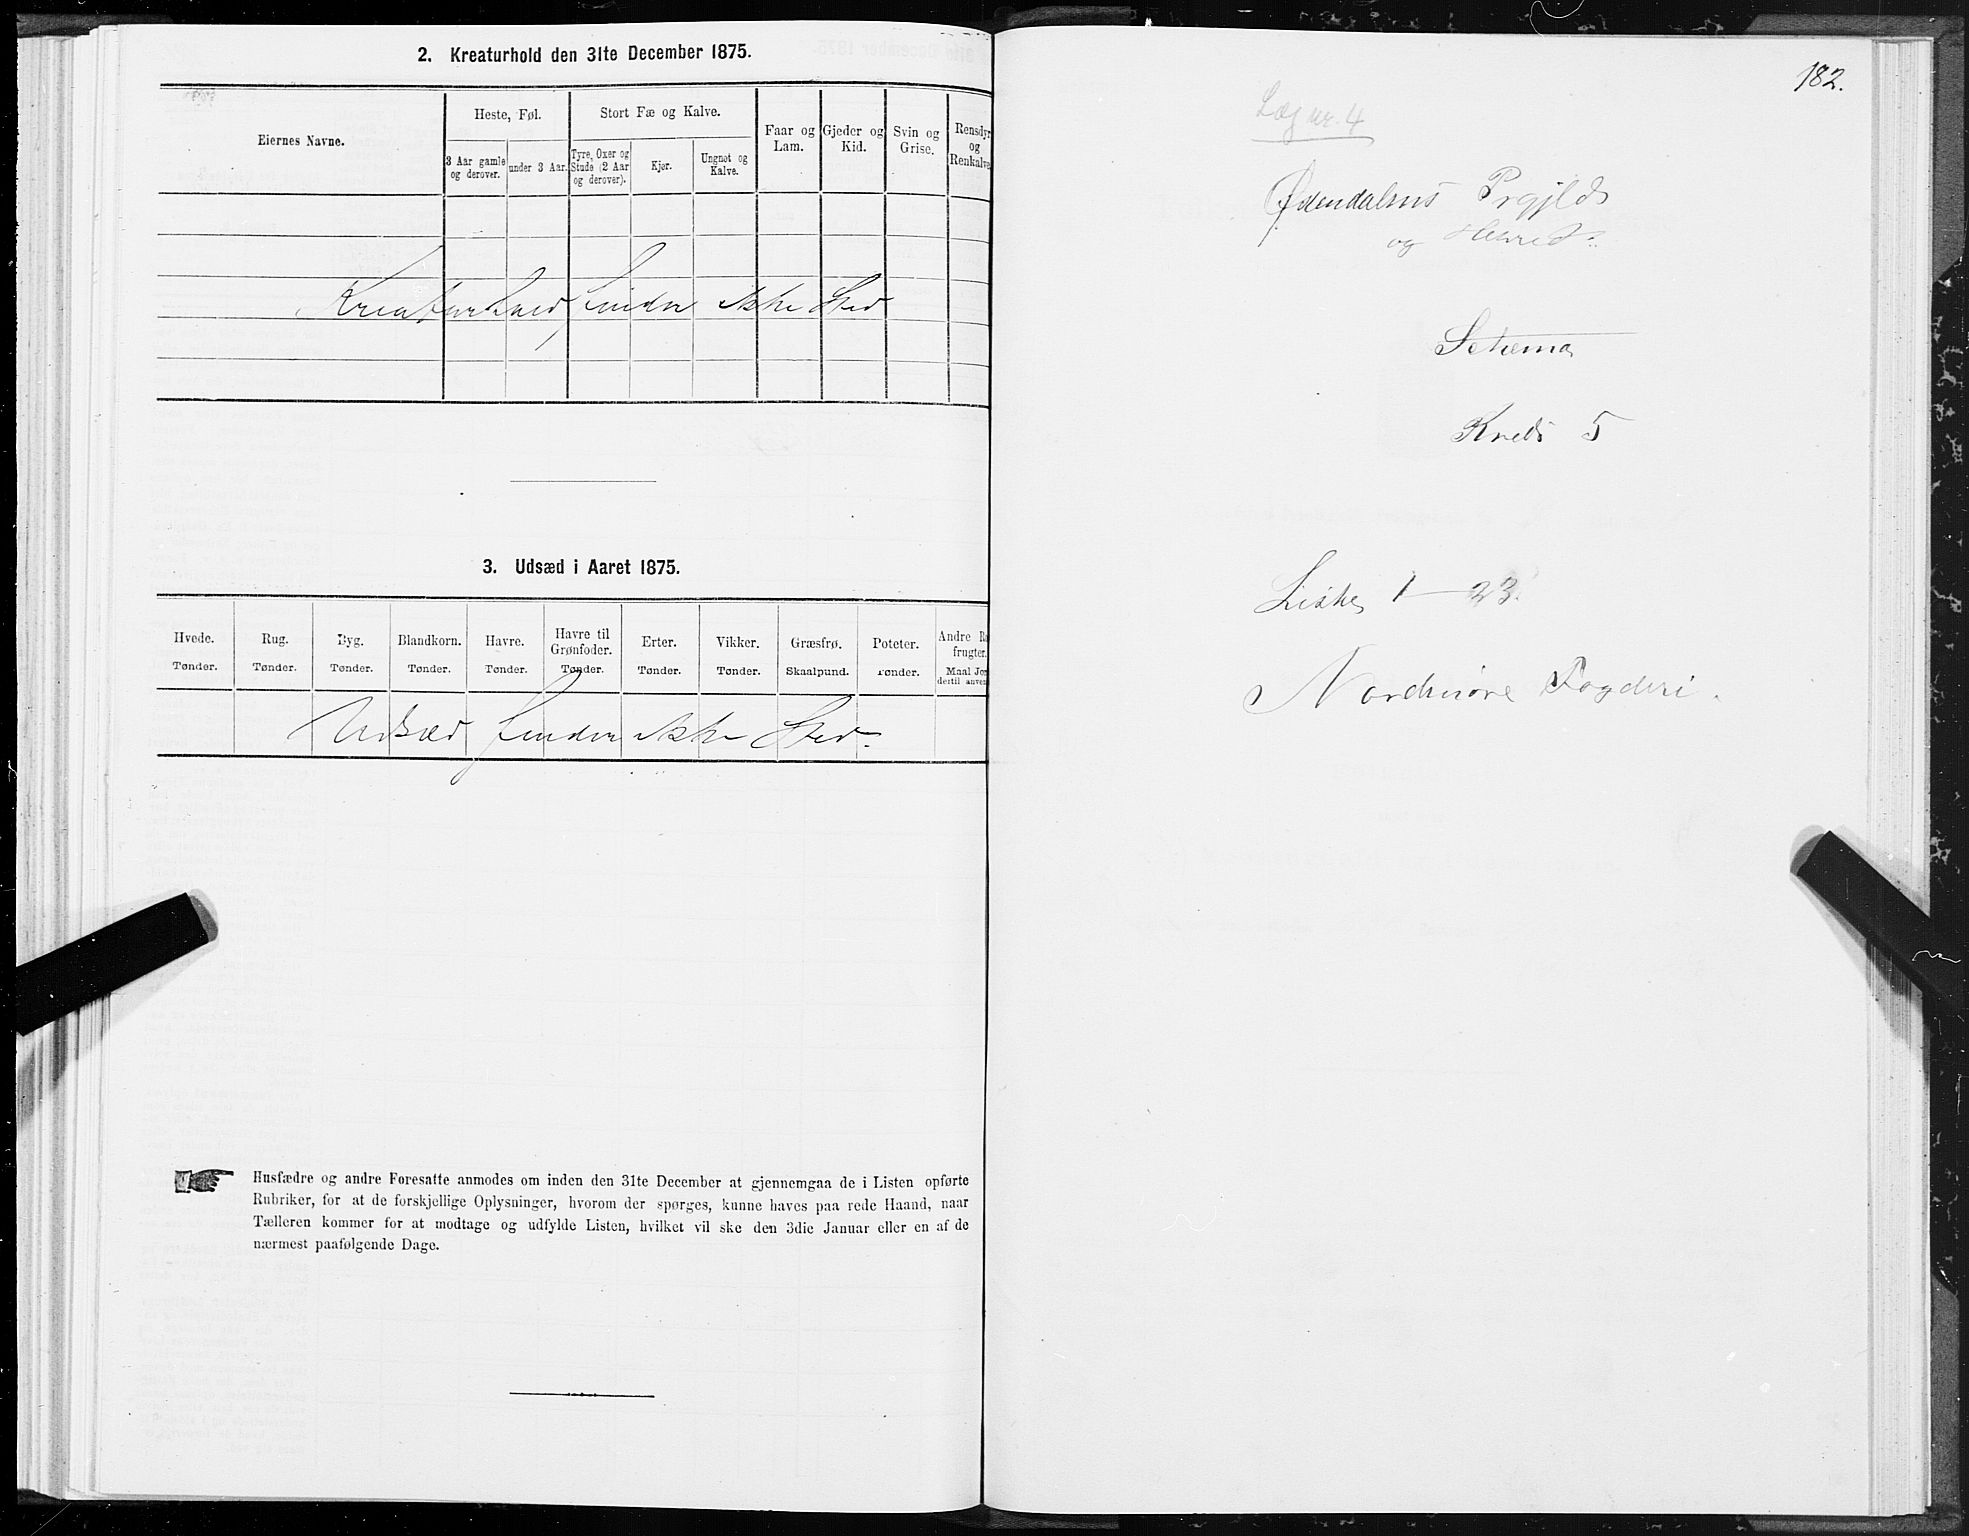 2. Kreaturhold den 31te December 1875.
Eiernes Navne.
Heste, Føl.
Stort Fæ og Kalve.
Faar og Lam.
Gjeder og Kid.
Svin og Grise.
Rensdyr og Renkalve
3 Aar gamle og derover.
under 3 Aar.
Tyre, Oxer og Stude (2 Aar og derover).
Kjør.
Ungnøt og Kalve.
Kreaturhold finder ikke Sted
3. Udsæd i Aaret 1875.
Hvede. Rug. Byg. Blandkorn. Havre. Havre til Grønfoder. Erter. Vikker. Græsfrø. Poteter. Andre
frugter.
Tønder. Tønder. Tønder. Tønder. Tønder. Tønder. Tønder. Tønder. Skaalpund. Tønder. Maal
dertil
Udsæd finder ikke Sted.
Husfædre og andre Foresatte anmodes om inden den 31te December at gjennemgaa de i Listen opførte
Rubriker, for at de forskjellige Oplysninger, hvorom der spørges, kunne haves paa rede Haand, naar
Tælleren kommer for at modtage og udfylde Listen, hvilket vil ske den 3die Januar eller en af de
nærmest paafølgende Dage.
182.
Læg nr. 4
Prgjld
og Herred
Schema
Kreds 5
Liste 1 — 23.
Nordmøre Fogderi.